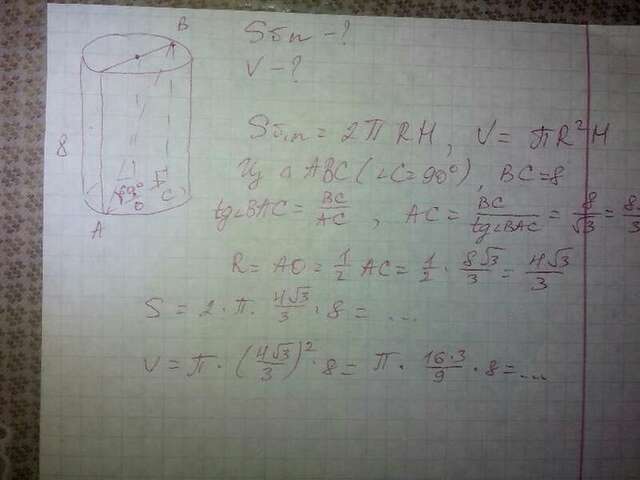 B
8
60°
C
O
A
Sбп - ?
V - ?
Sб.п = 2πRH, V = πR²H
Из △ABC (∠C=90°), BC=8
tg∠BAC = BC/AC, AC = BC/tg∠BAC = 8/√3 = 8
R = AO = 1/2 AC = 1/2 · 8√3/3 = 4√3/3
S = 2·π· 4√3/3 · 8 = ...
V = π · (4√3/3)² · 8 = π · 16·3/9 · 8 = ...